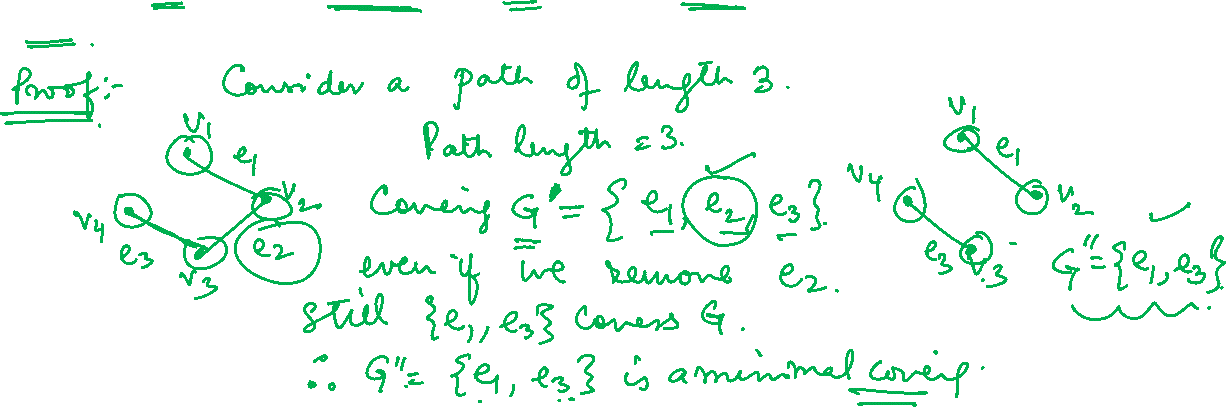 Proof:-
Consider a path of length 3.
Path length = 3.
V1
e1
V2
V4
e3
V3
e2
Covering G' = { e1, e2, e3}.
even if we remove e2.
still {e1, e3} covers G.
∴ G'' = {e1, e3} is a minimal covering.
V1
e1
V4
V2
e3
V3
G''={e1, e3}